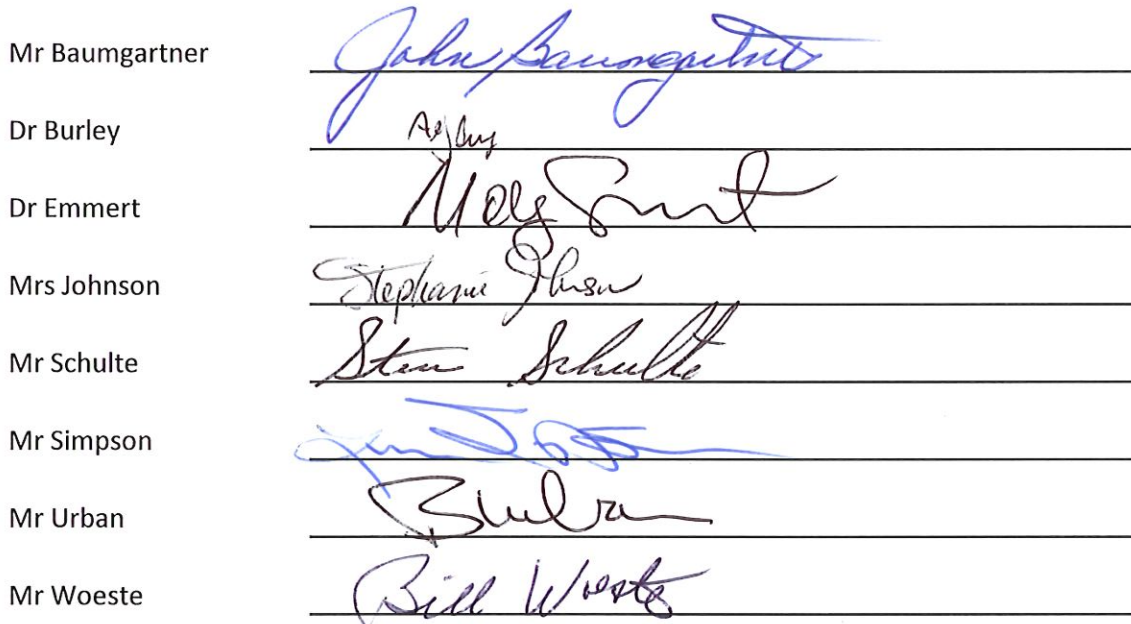 Mr Baumgartner John Baumgartner
Dr Burley
Dr Emmert Molly Emmert
Mrs Johnson Stephanie Johnson
Mr Schulte Steve Schulte
Mr Simpson
Mr Urban B Urban
Mr Woeste Bill Woeste